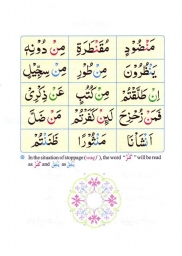 مِنْ دُوْنِهٖ مُقَنْطَرَةِ مَنْضُوْدٍ
مِنْ سِجِّيْلٍ مِنْ طُوْرٍ يَنْظُرُوْنَ
عَنْ ذِكْرِيْ مِنْ كُتُبٍ اِنْ طَلَّقْتُمْ
مَنْ ضَلَّ لَئِنْ كَفَرْتُمْ فَمَنْ زُحْزِحَ
ظَنَنْتُمْ مَنْثُوْرًا اَنْشَاْنَا
In the situation of stoppage (waqf), the word " " will be read
as and as